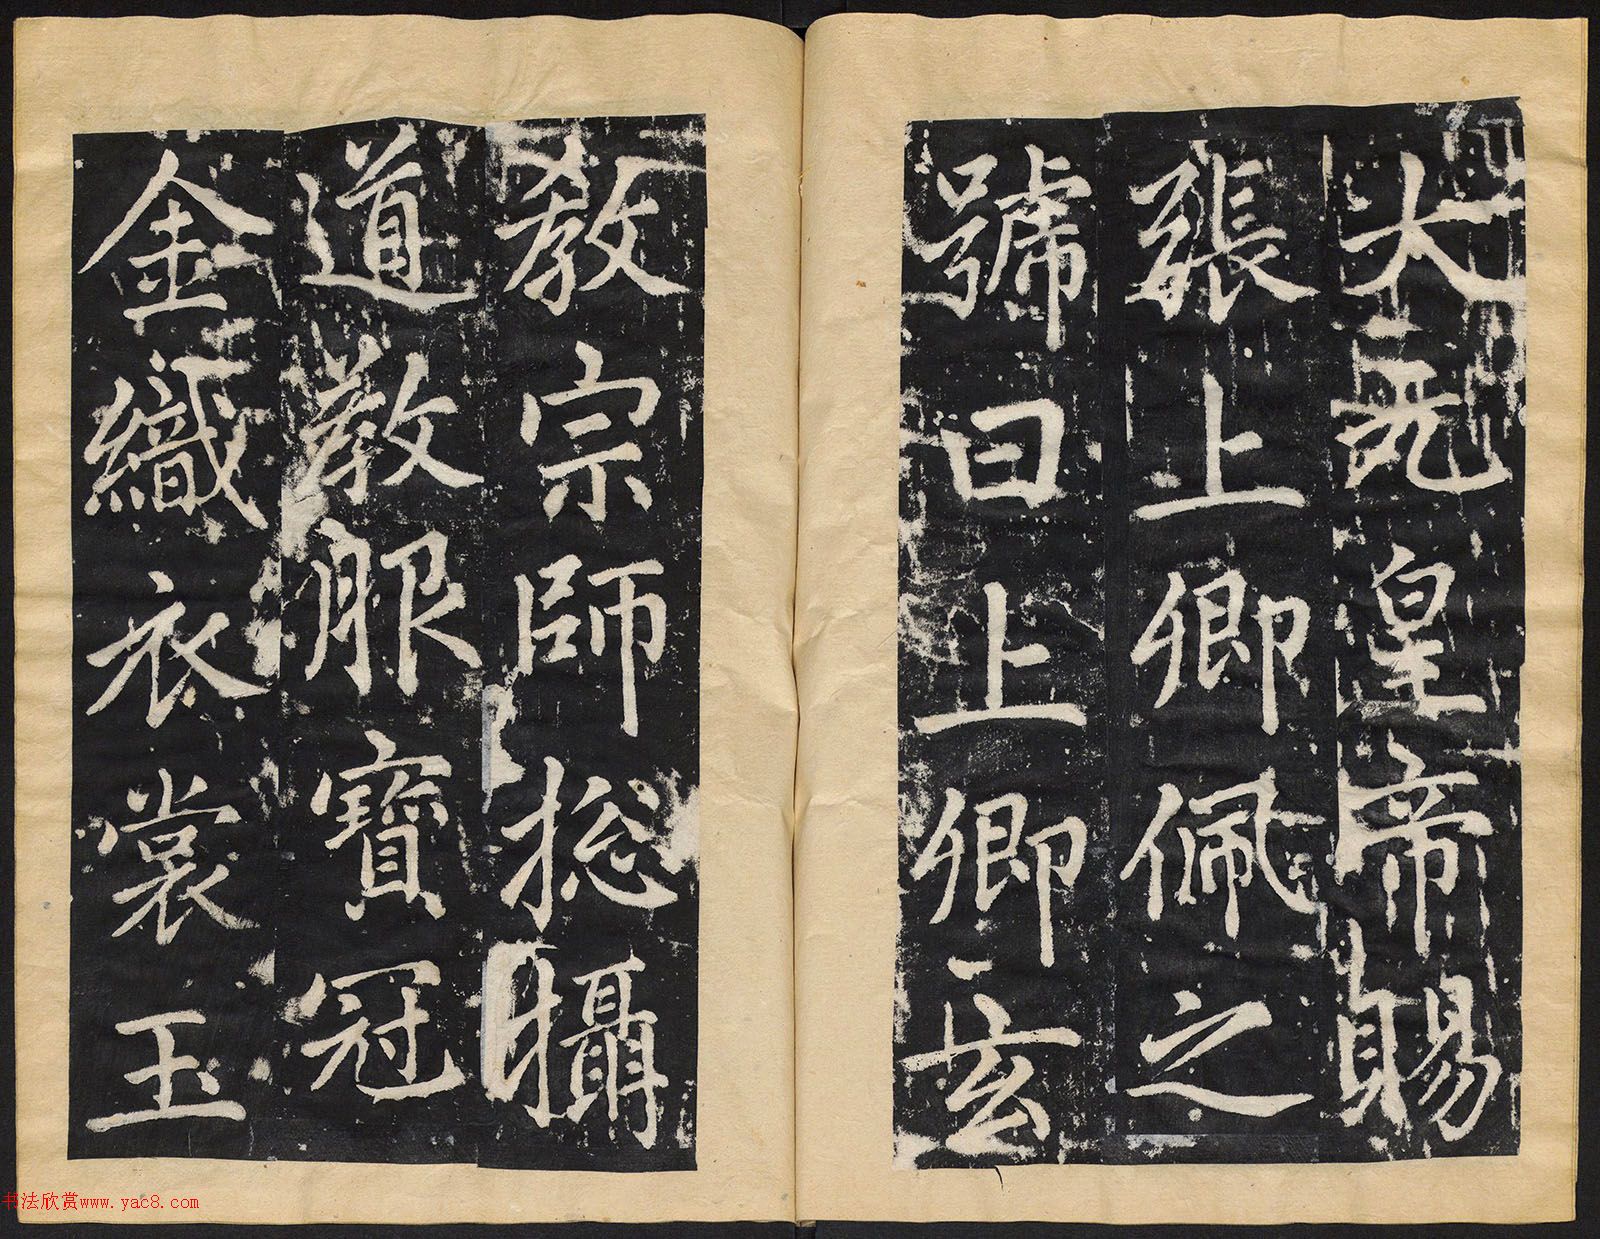 大元皇帝賜
張上卿佩之
號曰上卿玄
教宗師捴攝
道教服寶冠
金織衣裳玉
书法欣赏www.yac8.com